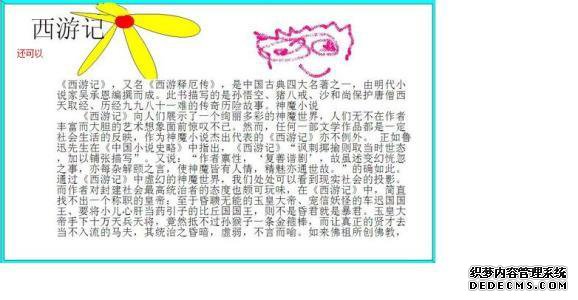 西游记
还可以
《西游记》，又名《西游释厄传》，是中国古典四大名著之一，由明代小
说家吴承恩编撰而成。此书描写的是孙悟空、猪八戒、沙和尚保护唐僧西
天取经、历经九九八十一难的传奇历险故事。神魔小说
《西游记》向人们展示了一个绚丽多彩的神魔世界，人们无不在作者
丰富而大胆的艺术想象面前惊叹不已。然而，任何一部文学作品都是一定
社会生活的反映，作为神魔小说杰出代表的《西游记》亦不例外。 正如鲁
迅先生在《中国小说史略》中指出，《西游记》“讽刺揶揄则取当时世态
，加以铺张描写”。又说：“作者禀性，‘复善谐剧’，故虽述变幻恍忽
之事，亦每杂解颐之言，使神魔皆有人情，精魅亦通世故。”的确如此。
通过《西游记》中虚幻的神魔世界，我们处处可以看到现实社会的投影。
而作者对封建社会最高统治者的态度也颇可玩味，在《西游记》中，简直
找不出一个称职的皇帝；至于昏聩无能的玉皇大帝、宠信妖怪的车迟国国
王、要将小儿心肝当药引子的比丘国国王，则不是昏君就是暴君。玉皇大
帝手下十万天兵天将，竟然抵不过孙猴子一条金箍棒，而让真正的贤才去
当不入流的马夫，其统治之昏暗，虚弱，不言而喻。如来佛祖所创佛教，
织梦内容管理系统
DEDECMS.COM